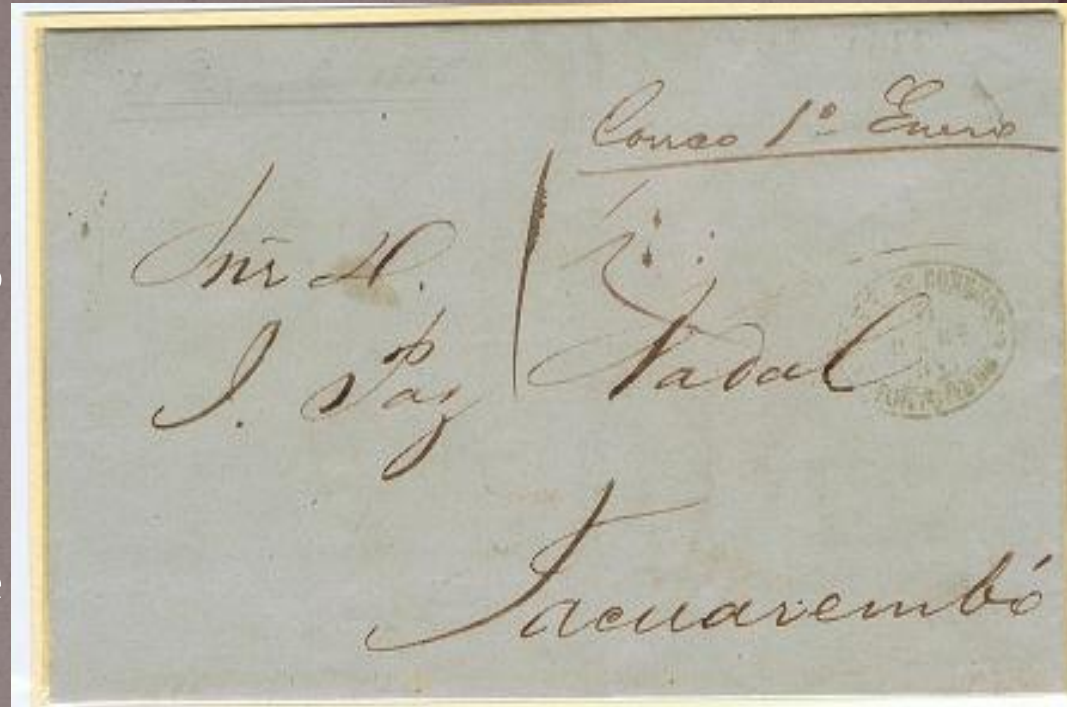 Correo 1º Enero
Snr D.
J. Paz Nadal
Tacuarembó
CORREOS